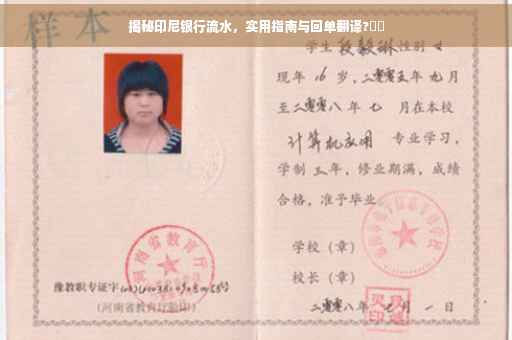 揭秘印尼银行流水，实用指南与回单翻译?
样本
学生 段毅琳 性别 女
现年 16 岁，二零零五年 九 月
至二零零八年 七 月在本校
计算机应用 专业学习，
学制 三 年，修业期满，成绩
合格，准予毕业
学校（章）
校长（章）
二零零八年 七 月 一 日
河南省教育厅
豫教职专证字
（河南省教育厅验印）